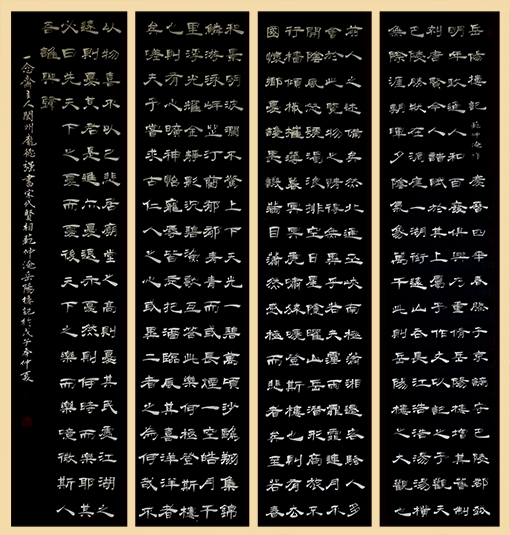 岳陽樓記 范仲淹作 慶曆四年春滕子京謫守巴陵郡越
明年政通人和百廢俱興乃重修岳陽樓增其舊制
刻唐賢今人詩賦於其上屬予作文以記之予觀夫
巴陵勝狀在洞庭一湖銜遠山吞長江浩浩湯湯橫
無際涯朝暉夕陰氣象萬千此則岳陽樓之大觀也
前人之述備矣然則北通巫峽南極瀟湘遷客騷人多
會於此覽物之情得無異乎若夫霪雨霏霏連月不
開陰風怒號濁浪排空日星隱曜山岳潛形商旅不
行檣傾楫摧薄暮冥冥虎嘯猿啼登斯樓也則有去
國懷鄉憂讒畏譏滿目蕭然感極而悲者矣至若春
和景明波瀾不驚上下天光一碧萬頃沙鷗翔集錦
鱗游泳岸芷汀蘭郁郁青青而或長煙一空皓月千
里浮光躍金靜影沉璧漁歌互答此樂何極登斯樓
也則有心曠神怡寵辱皆忘把酒臨風其喜洋洋者
矣嗟夫予嘗求古仁人之心或異二者之為何哉不
以物喜不以己悲居廟堂之高則憂其民處江湖之
遠則憂其君是進亦憂退亦憂然則何時而樂耶其
必曰先天下之憂而憂後天下之樂而樂噫微斯人
吾誰與歸
一念齋主人閬州龐德書宋代賢相范仲淹岳陽樓記於戊子年仲夏